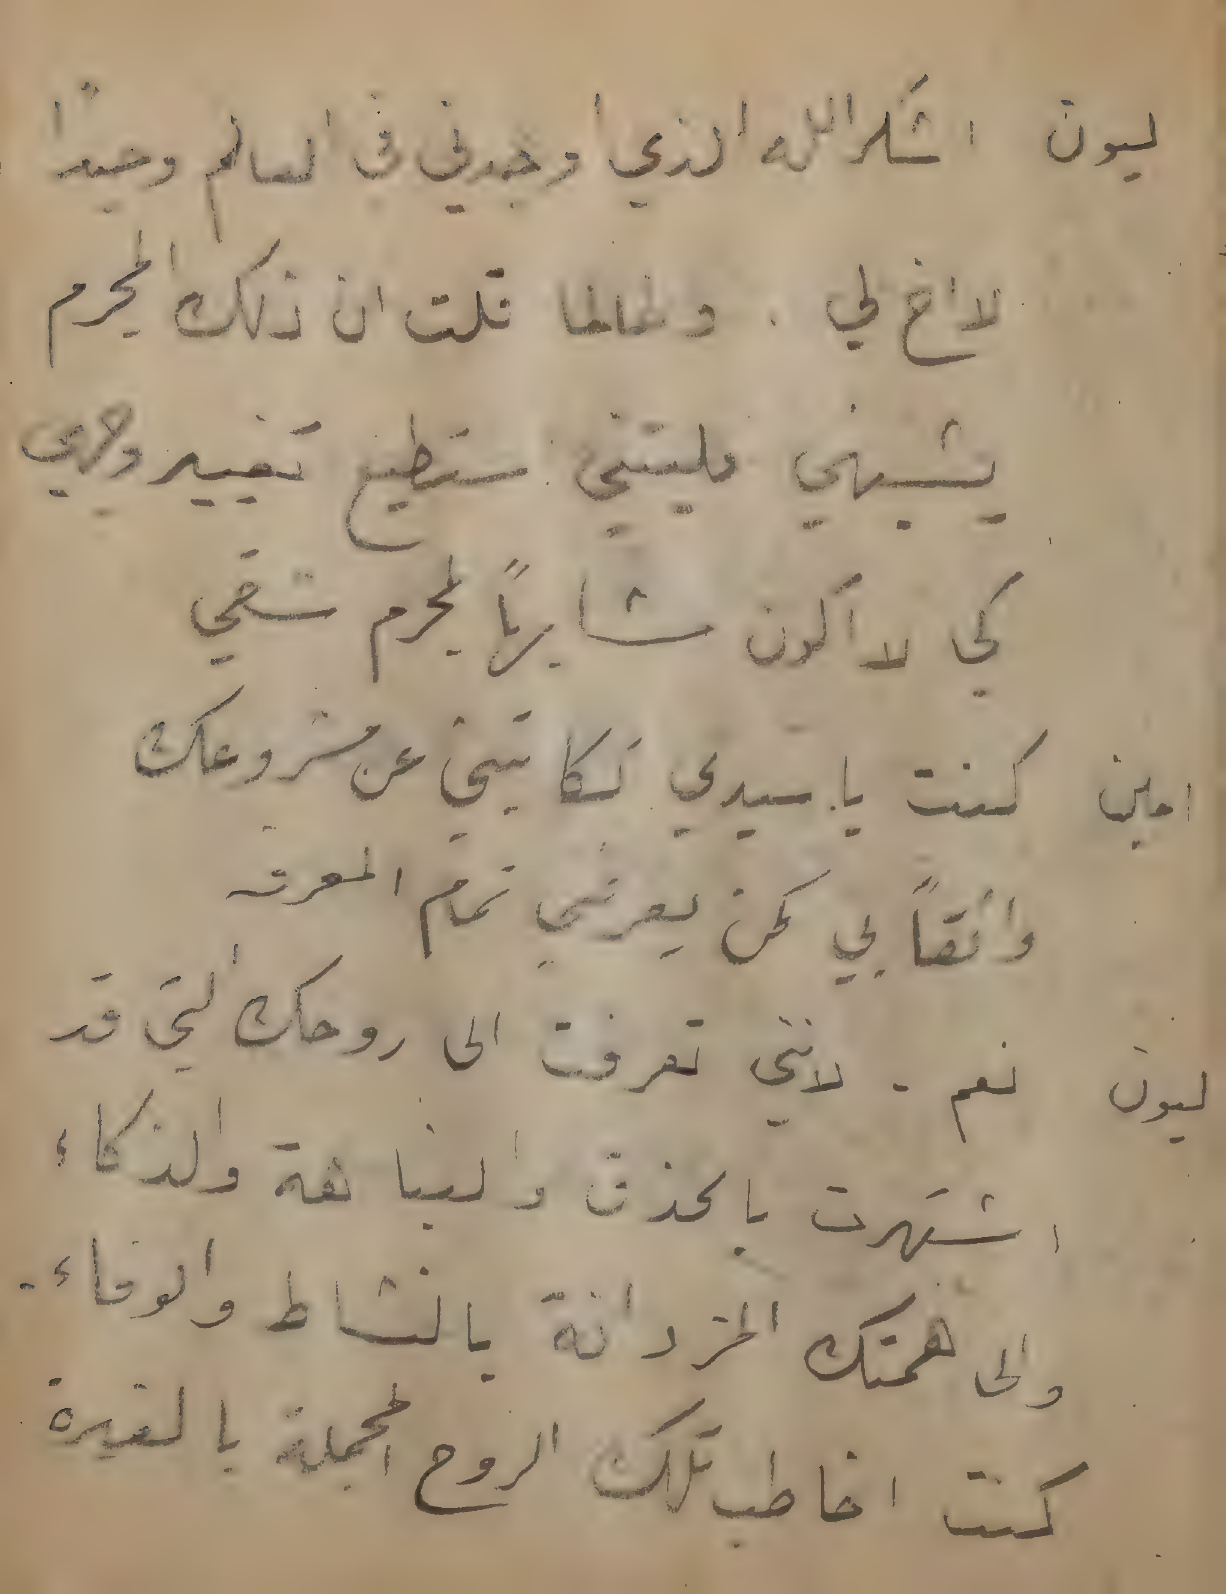 ليون اشكر الله الذي اوجدني في العالم وحيدًا
لا اخ لي . وطالما قلت ان ذلك المجرم
يشبهني فليتني ستطيع تغيير وجهي
كي لا اكون مشابهاً لمجرم شقي
امين كنت يا سيدي تكاتبني عن مشروعك
واثقاً بي كمن يعرفني تمام المعرفه
ليون نعم . لانني تعرفت الى روحك التي قد
اشتهرت بالحذق والنباهة والذكاء
والى همتك المزدانة بالنشاط والوفاء .
كنت اخاطب تلك الروح المجملة بالغيرة